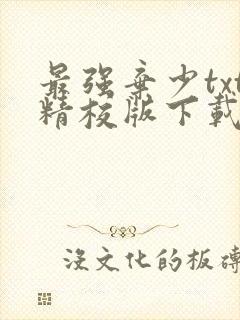 最强弃少txt
精校版下载
没文化的板砖